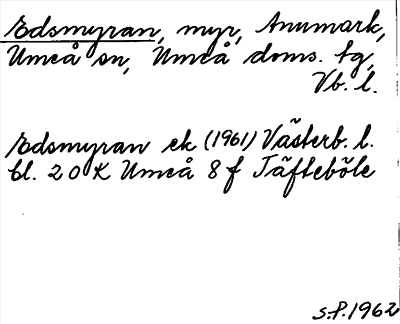 Edsmyran, myr, Anumark,
Umeå sn, Umeå doms. tg,
Vb. l.
Edsmyran ek (1961) Västerb. l.
bl. 20 K Umeå 8 f Täfteböle
S.P. 1962